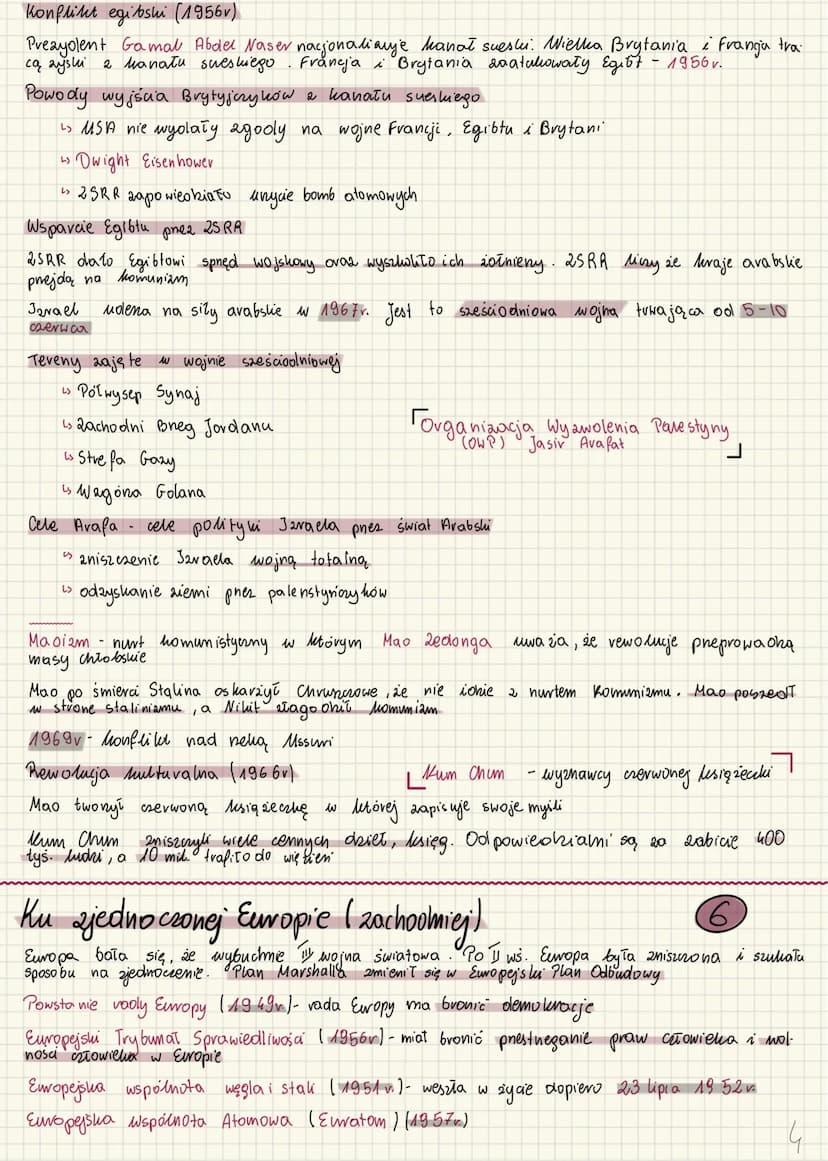 Konflikt egibski (1956r)
Prezydent Gamal Abdel Naser nacjonalizuje kanał sueski. Wielka Brytania i Francja tra-
cą zyski z kanału sueskiego. Francja i Brytania zaatakowały Egibt - 1956r.
Powody wyjścia Brytyjczyków z kanału sueskiego
↳ USA nie wydały zgody na wojnę Francji, Egibtu i Brytani
↳ Dwight Eisenhower
↳ ZSRR zapowiedziało użycie bomb atomowych
Wsparcie Egibtu przez ZSRR
ZSRR dało Egibtowi sprzęd wojskowy oraz wyszkoliło ich żołnierzy. ZSRR liczy że kraje arabskie
przejdą na komunizm
Izrael uderza na siły arabskie w 1967r. Jest to sześciodniowa wojna trwająca od 5-10
czerwca
Tereny zajęte w wojnie sześciodniowej
↳ Półwysep Synaj
↳ Zachodni Brzeg Jordanu
↳ Strefa Gazy
↳ Wzgórza Golana
Organizacja Wyzwolenia Palestyny
(OWP) Jasir Arafat
Cele Arafa - cele polityki Izraela przez świat Arabski
↳ zniszczenie Izraela wojną totalną
↳ odzyskanie ziemi przez palenstyńczyków
Maoizm - nurt komunistyczny w którym Mao Zedonga uważa, że rewolucje przeprowadzą
masy chłobskie
Mao po śmierci Stalina oskarżył Chruszczowe, że nie idzie z nurtem komunizmu. Mao poszedł
w strone stalinizmu, a Nikit złagodził komunizm
1969r - konflikt nad rzeką Ussuri
Rewolucja kulturalna (1966r)
Kum Chum - wyznawcy czerwonej książeczki
Mao tworzył czerwoną książeczkę w której zapisuje swoje myśli
Kum Chum zniszczyli wiele cennych dzieł, ksiąg. Odpowiedzialni są za zabicie 400
tyś. ludzi, a 10 mil. trafiło do więzień
Ku zjednoczonej Europie (zachodniej)
6
Europa bała się, że wybuchnie III wojna światowa. Po II wś. Europa była zniszczona i szukała
sposobu na zjednoczenie. Plan Marshalla zmienił się w Europejski Plan Odbudowy
Powstanie rady Europy (1949r)- rada Europy ma bronić demokracje
Europejski Trybunał Sprawiedliwości (1956r) - miał bronić przestrzeganie praw człowieka i wol-
ności człowieka w Europie
Europejska wspólnota węgla i stali (1951r.)- weszła w życie dopiero 23 lipca 1952r.
Europejska wspólnota Atomowa (Euratom) (1957r.)
4